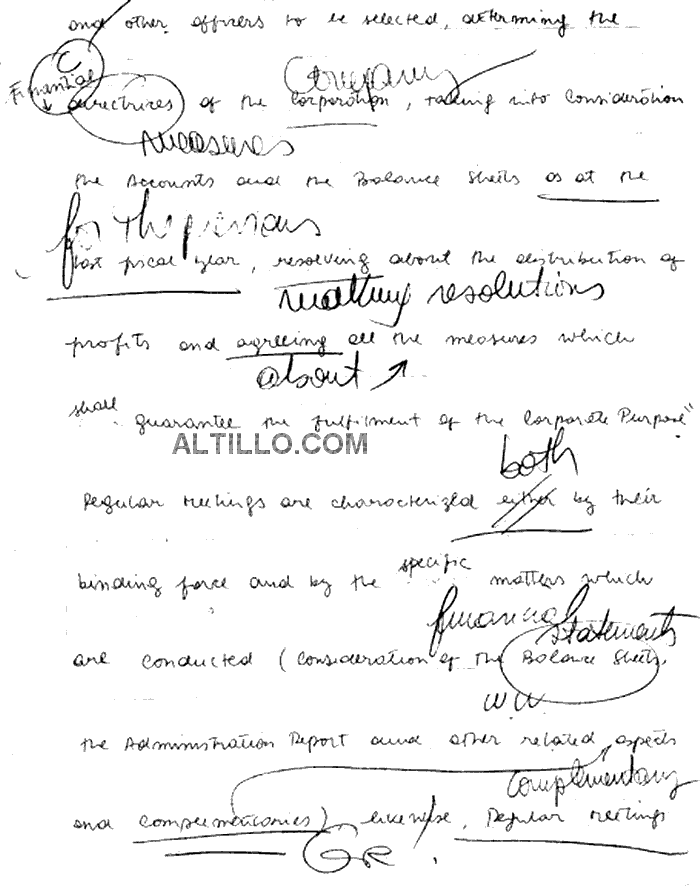 and other officers to be selected, determing the
C
Financial
Company
directrices of the Corporation, taking into consideration
measures
the Accounts and the Balance Sheets as at the
for the previous
last fiscal year, resolving about the distribution of
making resolutions
profits and agreeing all the measures which
about
shall guarantee the fulfilment of the Corporate Purpose"
ALTILLO.COM
both
Regular Meetings are characterized either by their
binding force and by the specific matters which
financial statements
are conducted (consideration of the Balance Sheets,
the Administration Report and other related aspects
complementary
and complementaries), likewise, Regular Meetings
GR